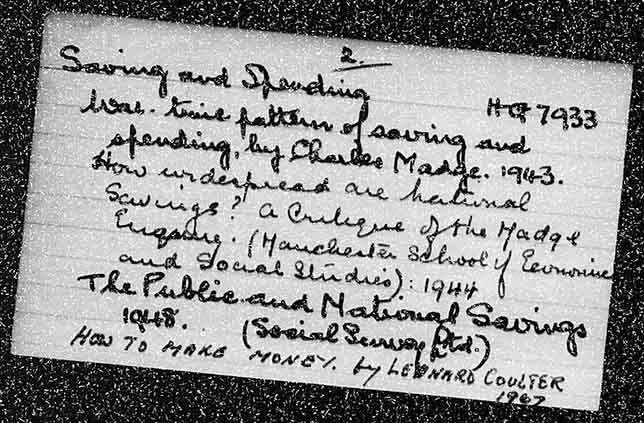 2.
Saving and Spending
HQ 7933
War-time pattern of saving and
spending, by Charles Madge. 1943.
How widespread are National
Savings? A Critique of the Madge
Enquiry. (Manchester School of Economics
and Social Studies): 1944
The Public and National Savings
1948. (Social Survey Ltd.)
HOW TO MAKE MONEY. by LEONARD COULTER
1967